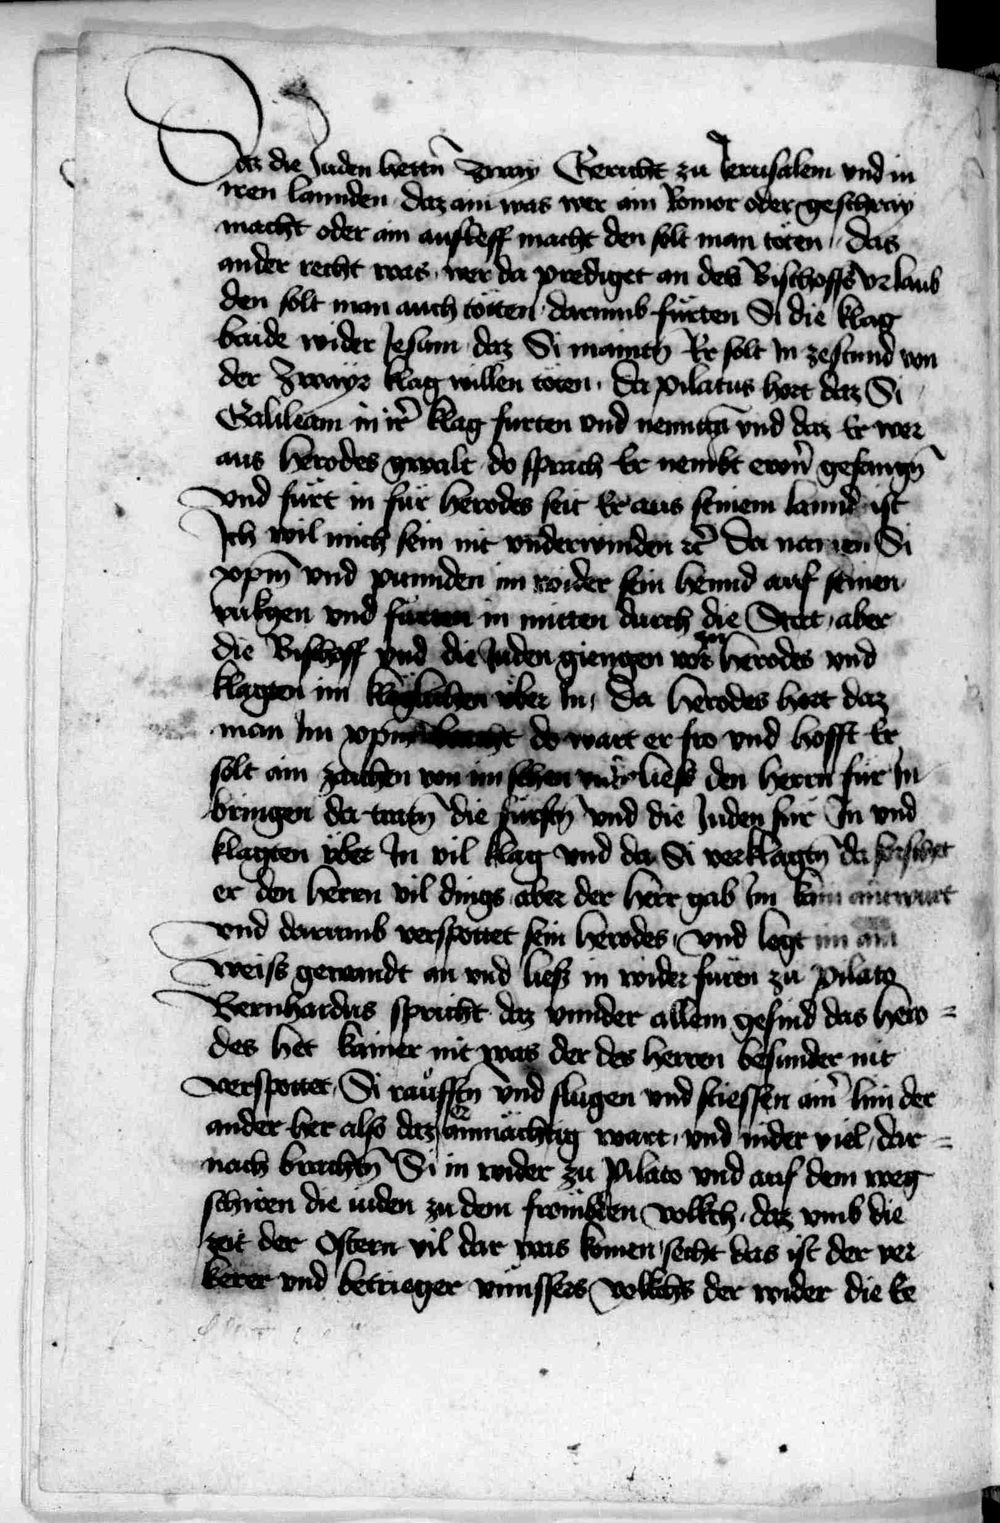 Daz die Juden hettn̄ zway Gericht zu Jerusalem vnd in
iren lannden daz ain was wer ain Romor oder geschray
macht oder ain aufleff macht den solt man töten, das
ander recht was, wer da prediget an des Bischoffs vrlaub
den solt man auch tötten darumb fürten Si die klag
baide wider Jesum daz Si maintn̄ Er solt In zestund von
der zwayr klag willen töten, da pilatus hort daz Si
Galileam in ir̄ klag furten vnd nenntn̄ vnd daz Er wer
aus herodes gwalt do sprach Er nembt ewrn̄ gefangn̄
vnd fürt in für herodes seit Er aus seinem lannd ist
Ich wil mich sein nit vnderwinden ꝛc̄ Da namen Si
xpm̄ vnd punnden im wider sein hennd auf seinen
rukgen vnd fürten in mitten durch die Stat, aber
die Bischoff vnd die Juden giengen vor zu herodes vnd
klagten im klöglichen über In, Da herodes hort daz
man Im xpm̄ bracht do wart er fro vnd hofft Er
solt ain zaichen von im sehen vnd liess den herrn für In
bringen da tratn̄ die fürstn̄ vnd die Juden für In vnd
klagten über In vil klag vnd da Si verklagtn̄ da forschet
er den herren vil dings aber der herr gab Im kain antwurt
vnd darumb verspottet sein herodes, vnd legt im ain
weiss gewandt an vnd liess in wider füren zu pilato
Bernhardus spricht daz vnnder allem gesind das hero=
des het kainer nit was der des herren besunder nit
verspottet, Si raufftn̄ vnd slugen vnd stiessen ain̄ hin der
ander her also daz Er anmächtig wart, vnd nider viel, dar=
nach brachtn̄ Si in wider zu Pilato vnd auf dem weg
schriren die iuden zu dem frömbden volkch, daz vmb die
zeit der Ostern vil dar was komen, secht das ist der ver
kerer vnd betrieger vnnsers volkchs der wider die Ee